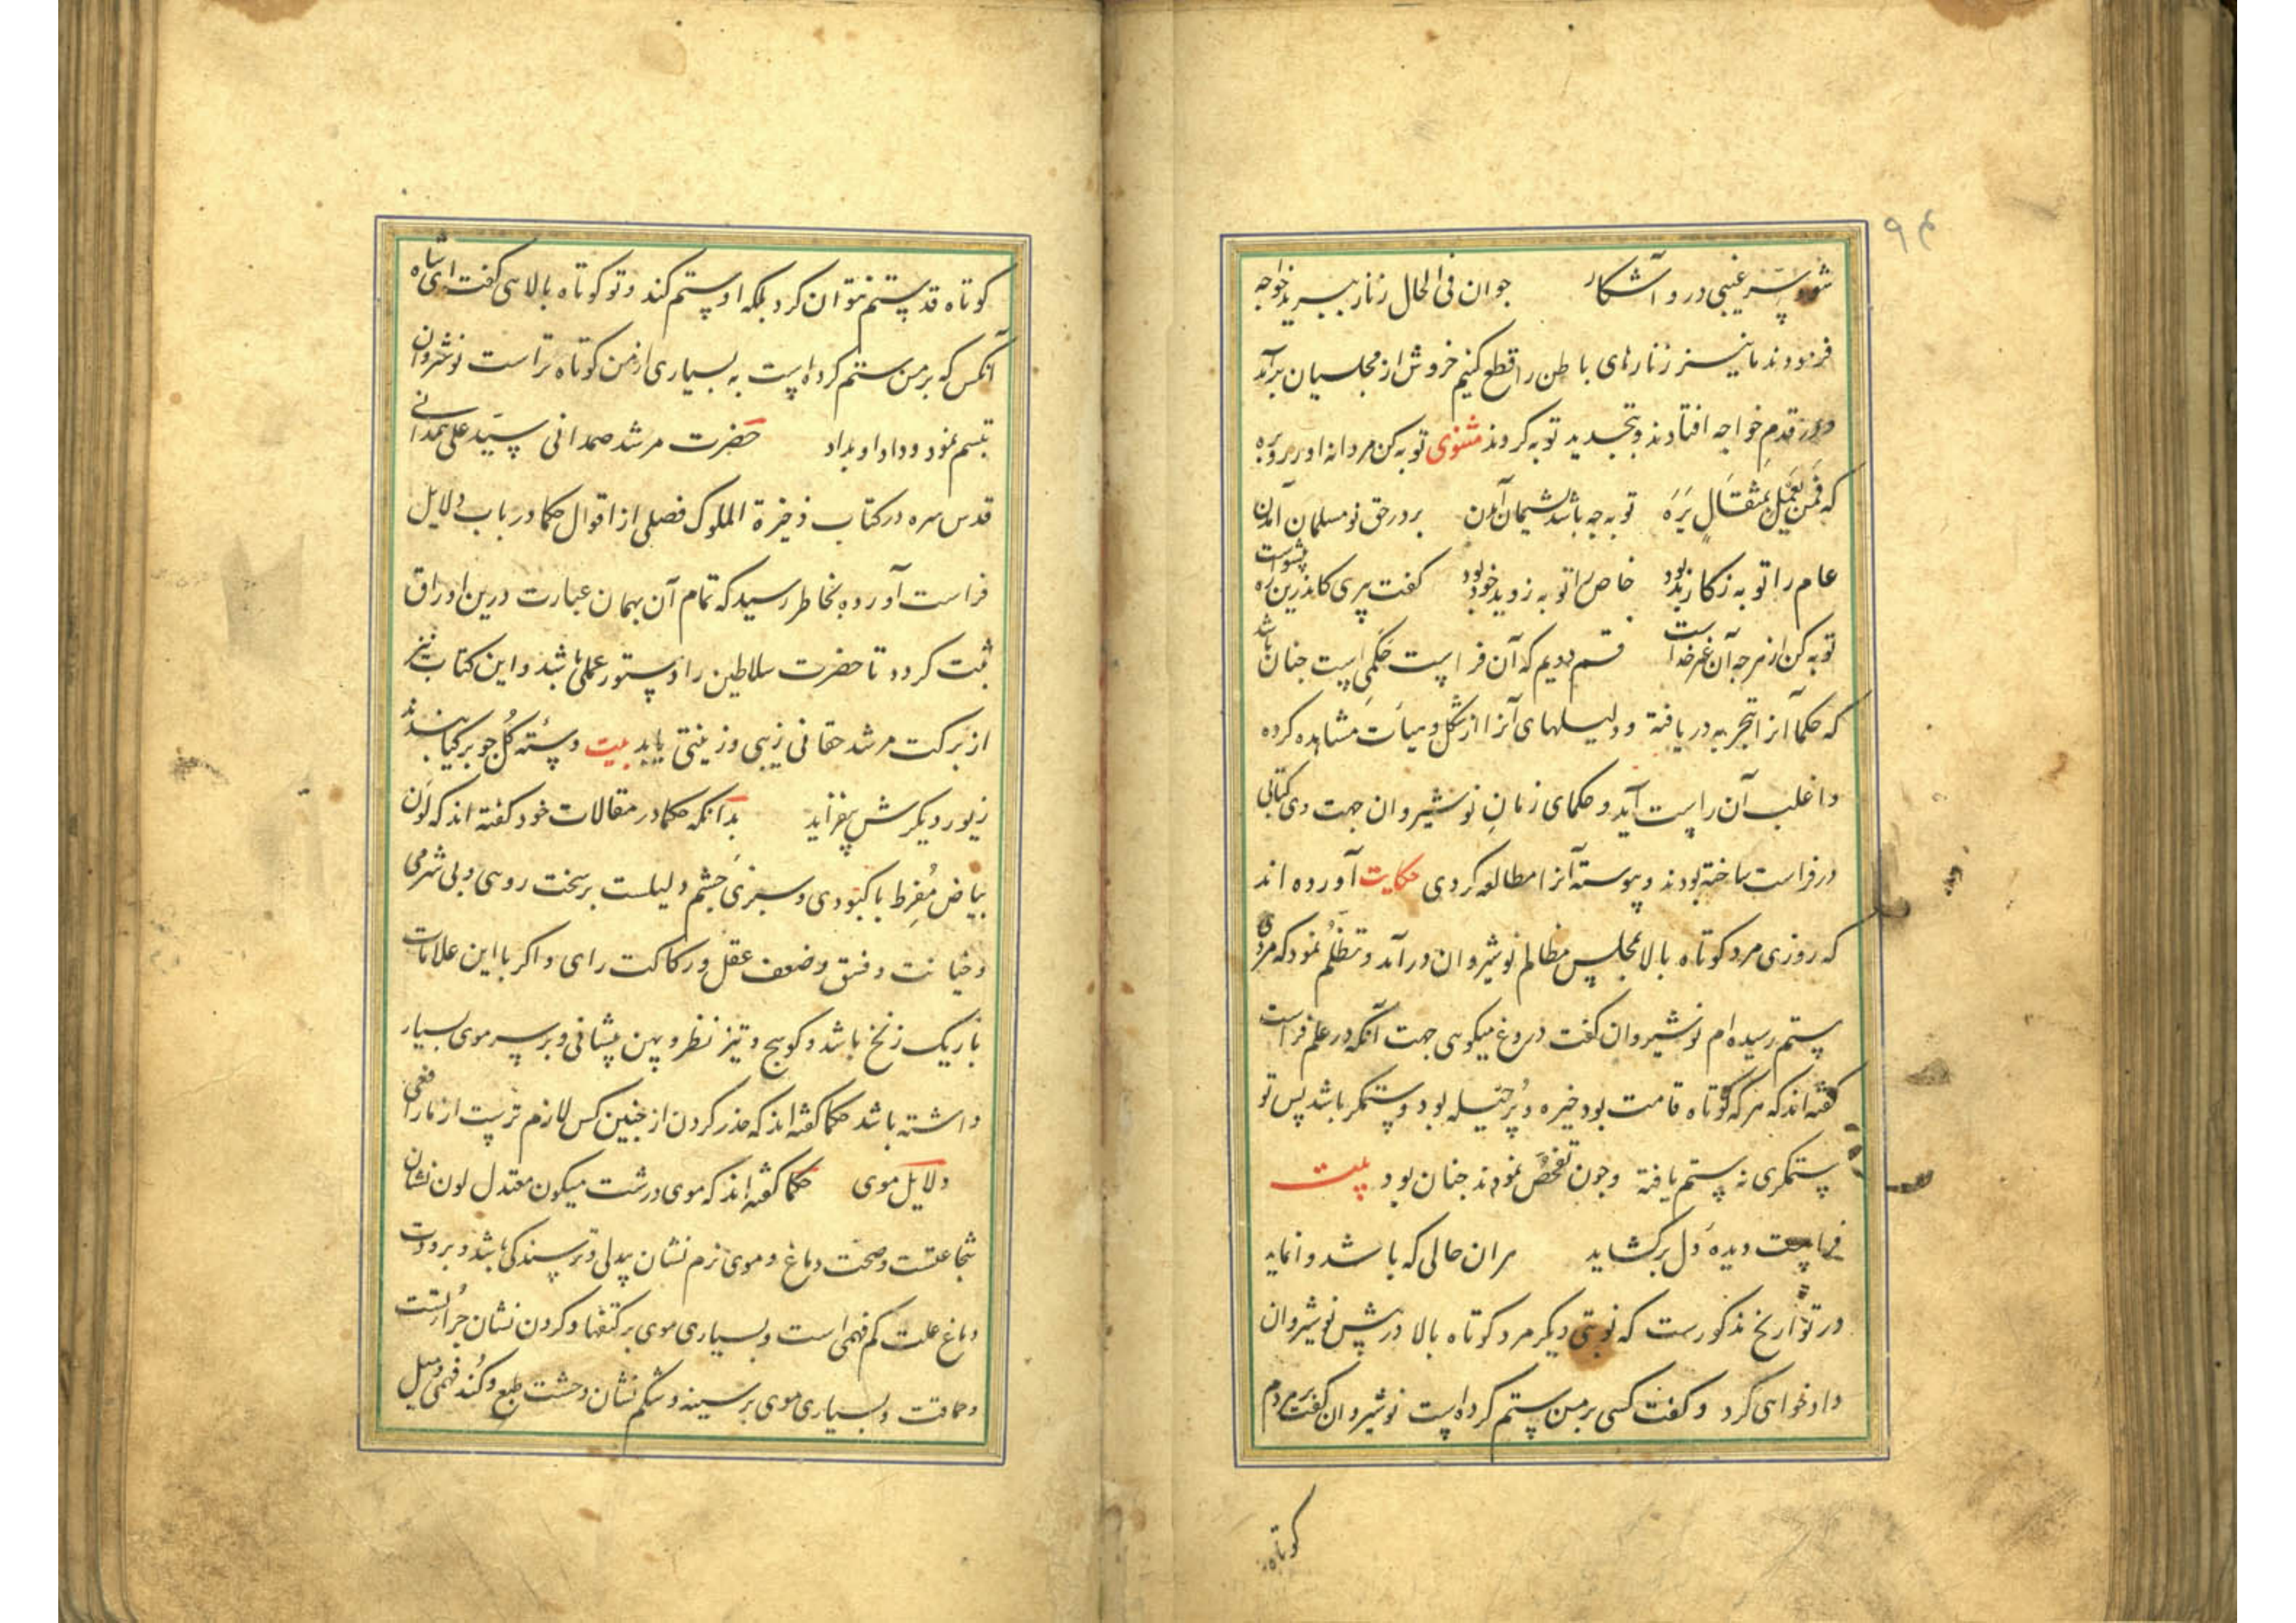 ۹۴
شود سِرّ غیبی درو آشکار جوان فی الحال زنار ببرید خواجه
فرمودند ما نیز زنارهای باطن را قطع کنیم خروش از مجلسیان برآمد
و در قدم خواجه افتادند و بتجدید توبه کردند مثنوی توبه کن مردانه اور روبره
که فَمَن یَعمَل بمثقالٍ یَرَه توبه چه باشد پشیمان آمدن بر در حق نو مسلمان آمدن
عام را توبه ز کار بد بود خاص را توبه ز دید خود بود گفت پیری کاندرین ره پیشواست
توبه کن از هر چه آن غیر خداست قسم دویم که آن فراست حُکمی است چنان باشد
که حکما آنرا بتجربه دریافته و دلیلهای آنرا از شکل و هیأت مشاهده کرده
و اغلب آن راست آید و حکمای زمانِ نوشیروان جهت وی کتابی
در فراست ساخته بودند و پیوسته آنرا مطالعه کردی حکایت آورده اند
که روزی مرد کوتاه بالا بمجلس مظالم نوشیروان درآمد و تظلّم نمود که مردی
ستم رسیده ام نوشیروان گفت دروغ میگویی جهت آنکه در علم فراست
گفته اند که هر که کوتاه قامت بود خیره و پُر حیله بود و ستمگر باشد پس تو
ستمگری نه ستم یافته و چون تفحّص نمودند چنان بود بیت
فراست دیدهٔ دل برگشاید هر ان حالی که باشد وانماید
در تواریخ مذکورست که نوبتی دیگر مرد کوتاه بالا در پیش نوشیروان
دادخواهی کرد و گفت کسی بر من ستم کرده است نوشیروان گفت بر مردم
کوتاه
کوتاه قد ستم نتوان کرد بلکه او ستم کند و تو کوتاه بالایی گفت ای شاه
آنکس که بر من ستم کرده است به بسیاری از من کوتاه تر است نوشروان
تبسم نمود و داد او بداد حضرت مرشد صمدانی سیّد علی همدانی
قدس سره در کتاب ذخیرة الملوک فصلی از اقوال حکما در باب دلایل
فراست آورده بخاطر رسید که تمام آن بهمان عبارت درین اوراق
ثبت گردد تا حضرت سلاطین را دستور عملی باشد و این کتاب نیز
از برکت مرشد حقانی زیبی و زینتی یابد بیت دستهٔ گُل چو بر گیا بندند
زیور دیگرش بیفزاید بدانکه حکما در مقالات خود گفته اند که لَون
بیاض مُفرِط با کبودی و سبزی چشم دلیلست بر سخت رویی و بی شرمی
و خیانت و فسق و ضعف عقل و رکاکت رای و اگر با این علامات
باریک زنخ باشد و کوسج و تیز نظر و پهن پیشانی و بر سر موی بسیار
داشته باشد حکما گفته اند که حذر کردن از چنین کس لازم ترست از مار افعی
دلایل موی حکما گفته اند که موی درشت میگون معتدل لون نشان
شجاعتست و صحت دماغ و موی نرم نشان بددلی و ترسندگی باشد و برودت
دماغ علت کم فهمی است و بسیاری موی بر کتفها و گردن نشان جُرأتست
و حماقت و بسیاری موی بر سینه و شکم نشان وحشت طبع و کُند فهمی و میل